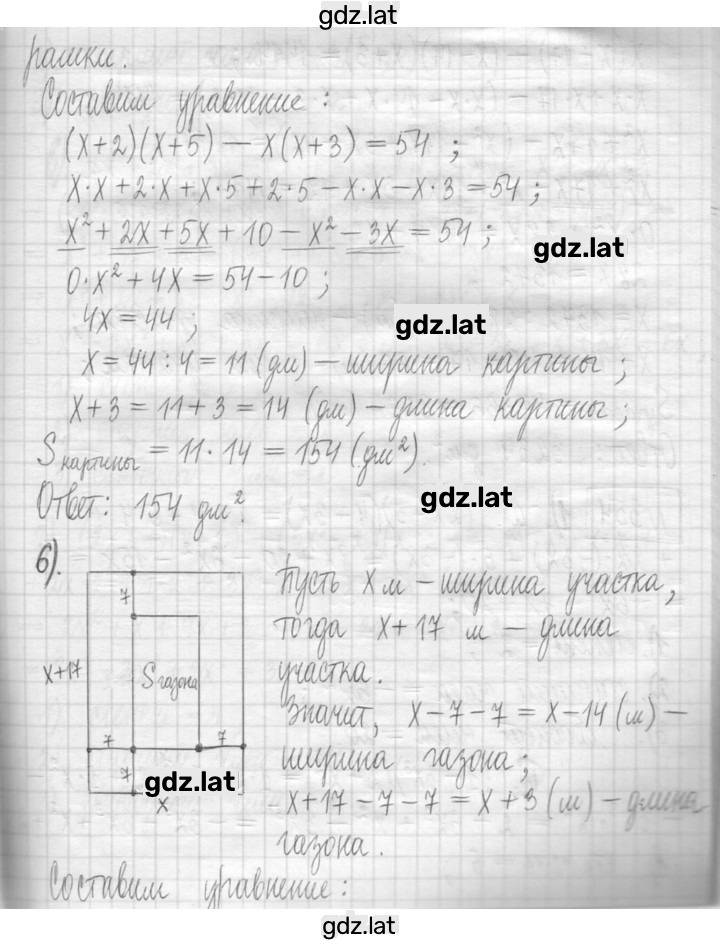 gdz.lat
рамки.
Составим уравнение:
(x+2)(x+5) — x(x+3) = 54 ;
x·x + 2·x + x·5 + 2·5 − x·x − x·3 = 54 ;
x² + 2x + 5x + 10 − x² − 3x = 54 ;
gdz.lat
0·x² + 4x = 54 − 10 ;
4x = 44 ;
gdz.lat
x = 44 : 4 = 11 (дм) — ширина картины ;
x + 3 = 11 + 3 = 14 (дм) — длина картины ;
S картины = 11 · 14 = 154 (дм²).
gdz.lat
Ответ: 154 дм².
б).
7
x+17
S газона
7 7
7
x
gdz.lat
Пусть x м — ширина участка,
тогда x + 17 м — длина
участка.
Значит, x − 7 − 7 = x − 14 (м) —
ширина газона;
x + 17 − 7 − 7 = x + 3 (м) — длина
газона.
Составим уравнение:
gdz.lat